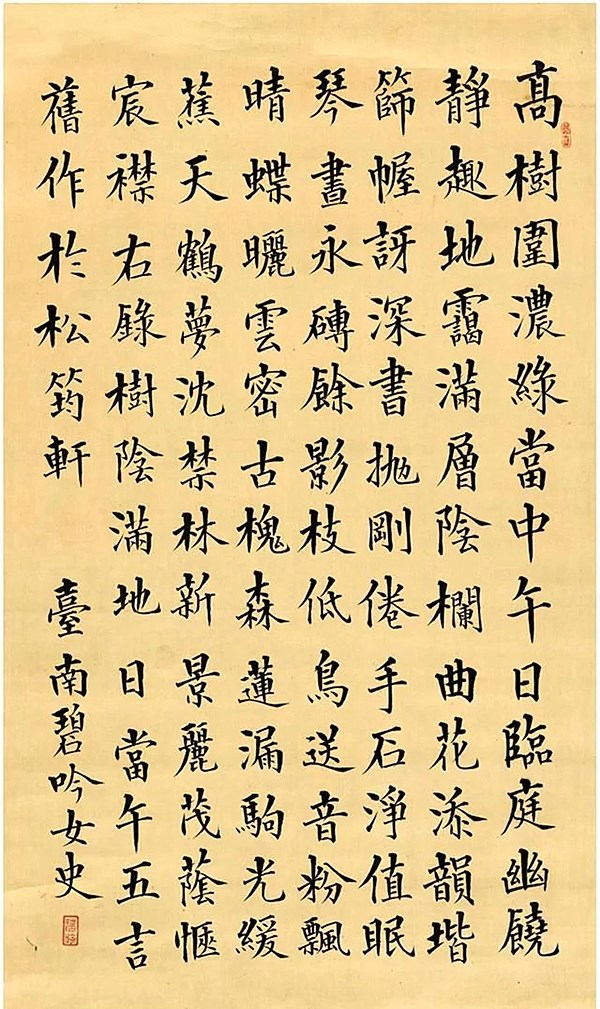 高樹圍濃綠當中午日臨庭幽饒
靜趣地靄滿層陰欄曲花添韻堦
篩幄訝深書拋剛倦手石淨值眠
琴晝永磚餘影枝低鳥送音粉飄
晴蝶曬雲密古槐森蓮漏駒光緩
蕉天鶴夢沈禁林新景麗茂蔭愜
宸襟右錄樹陰滿地日當午五言
舊作於松筠軒
臺南碧吟女史